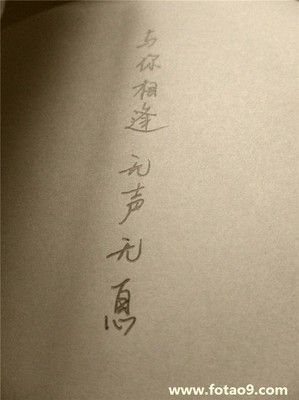 与你相逢 无声无息
www.fotao9.com